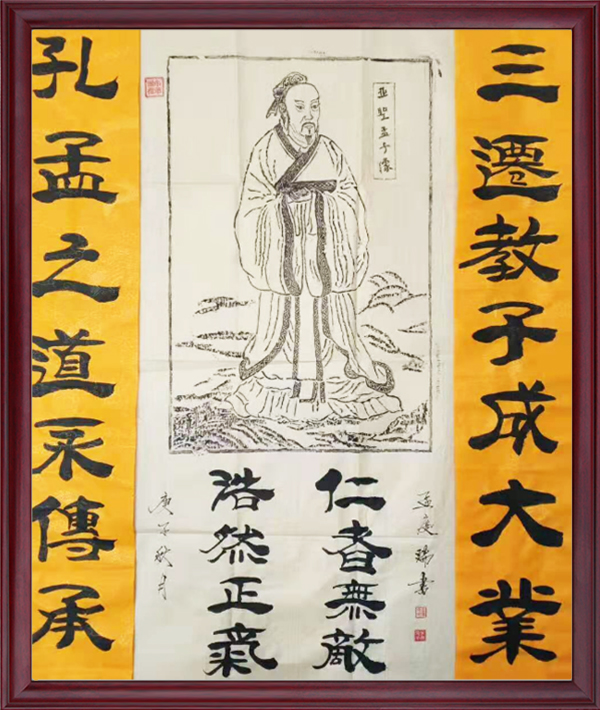 三遷教子成大業
亞聖孟子像
仁者無敵
浩然正氣
孟慶瑞書
庚子秋月
孔孟之道永傳承